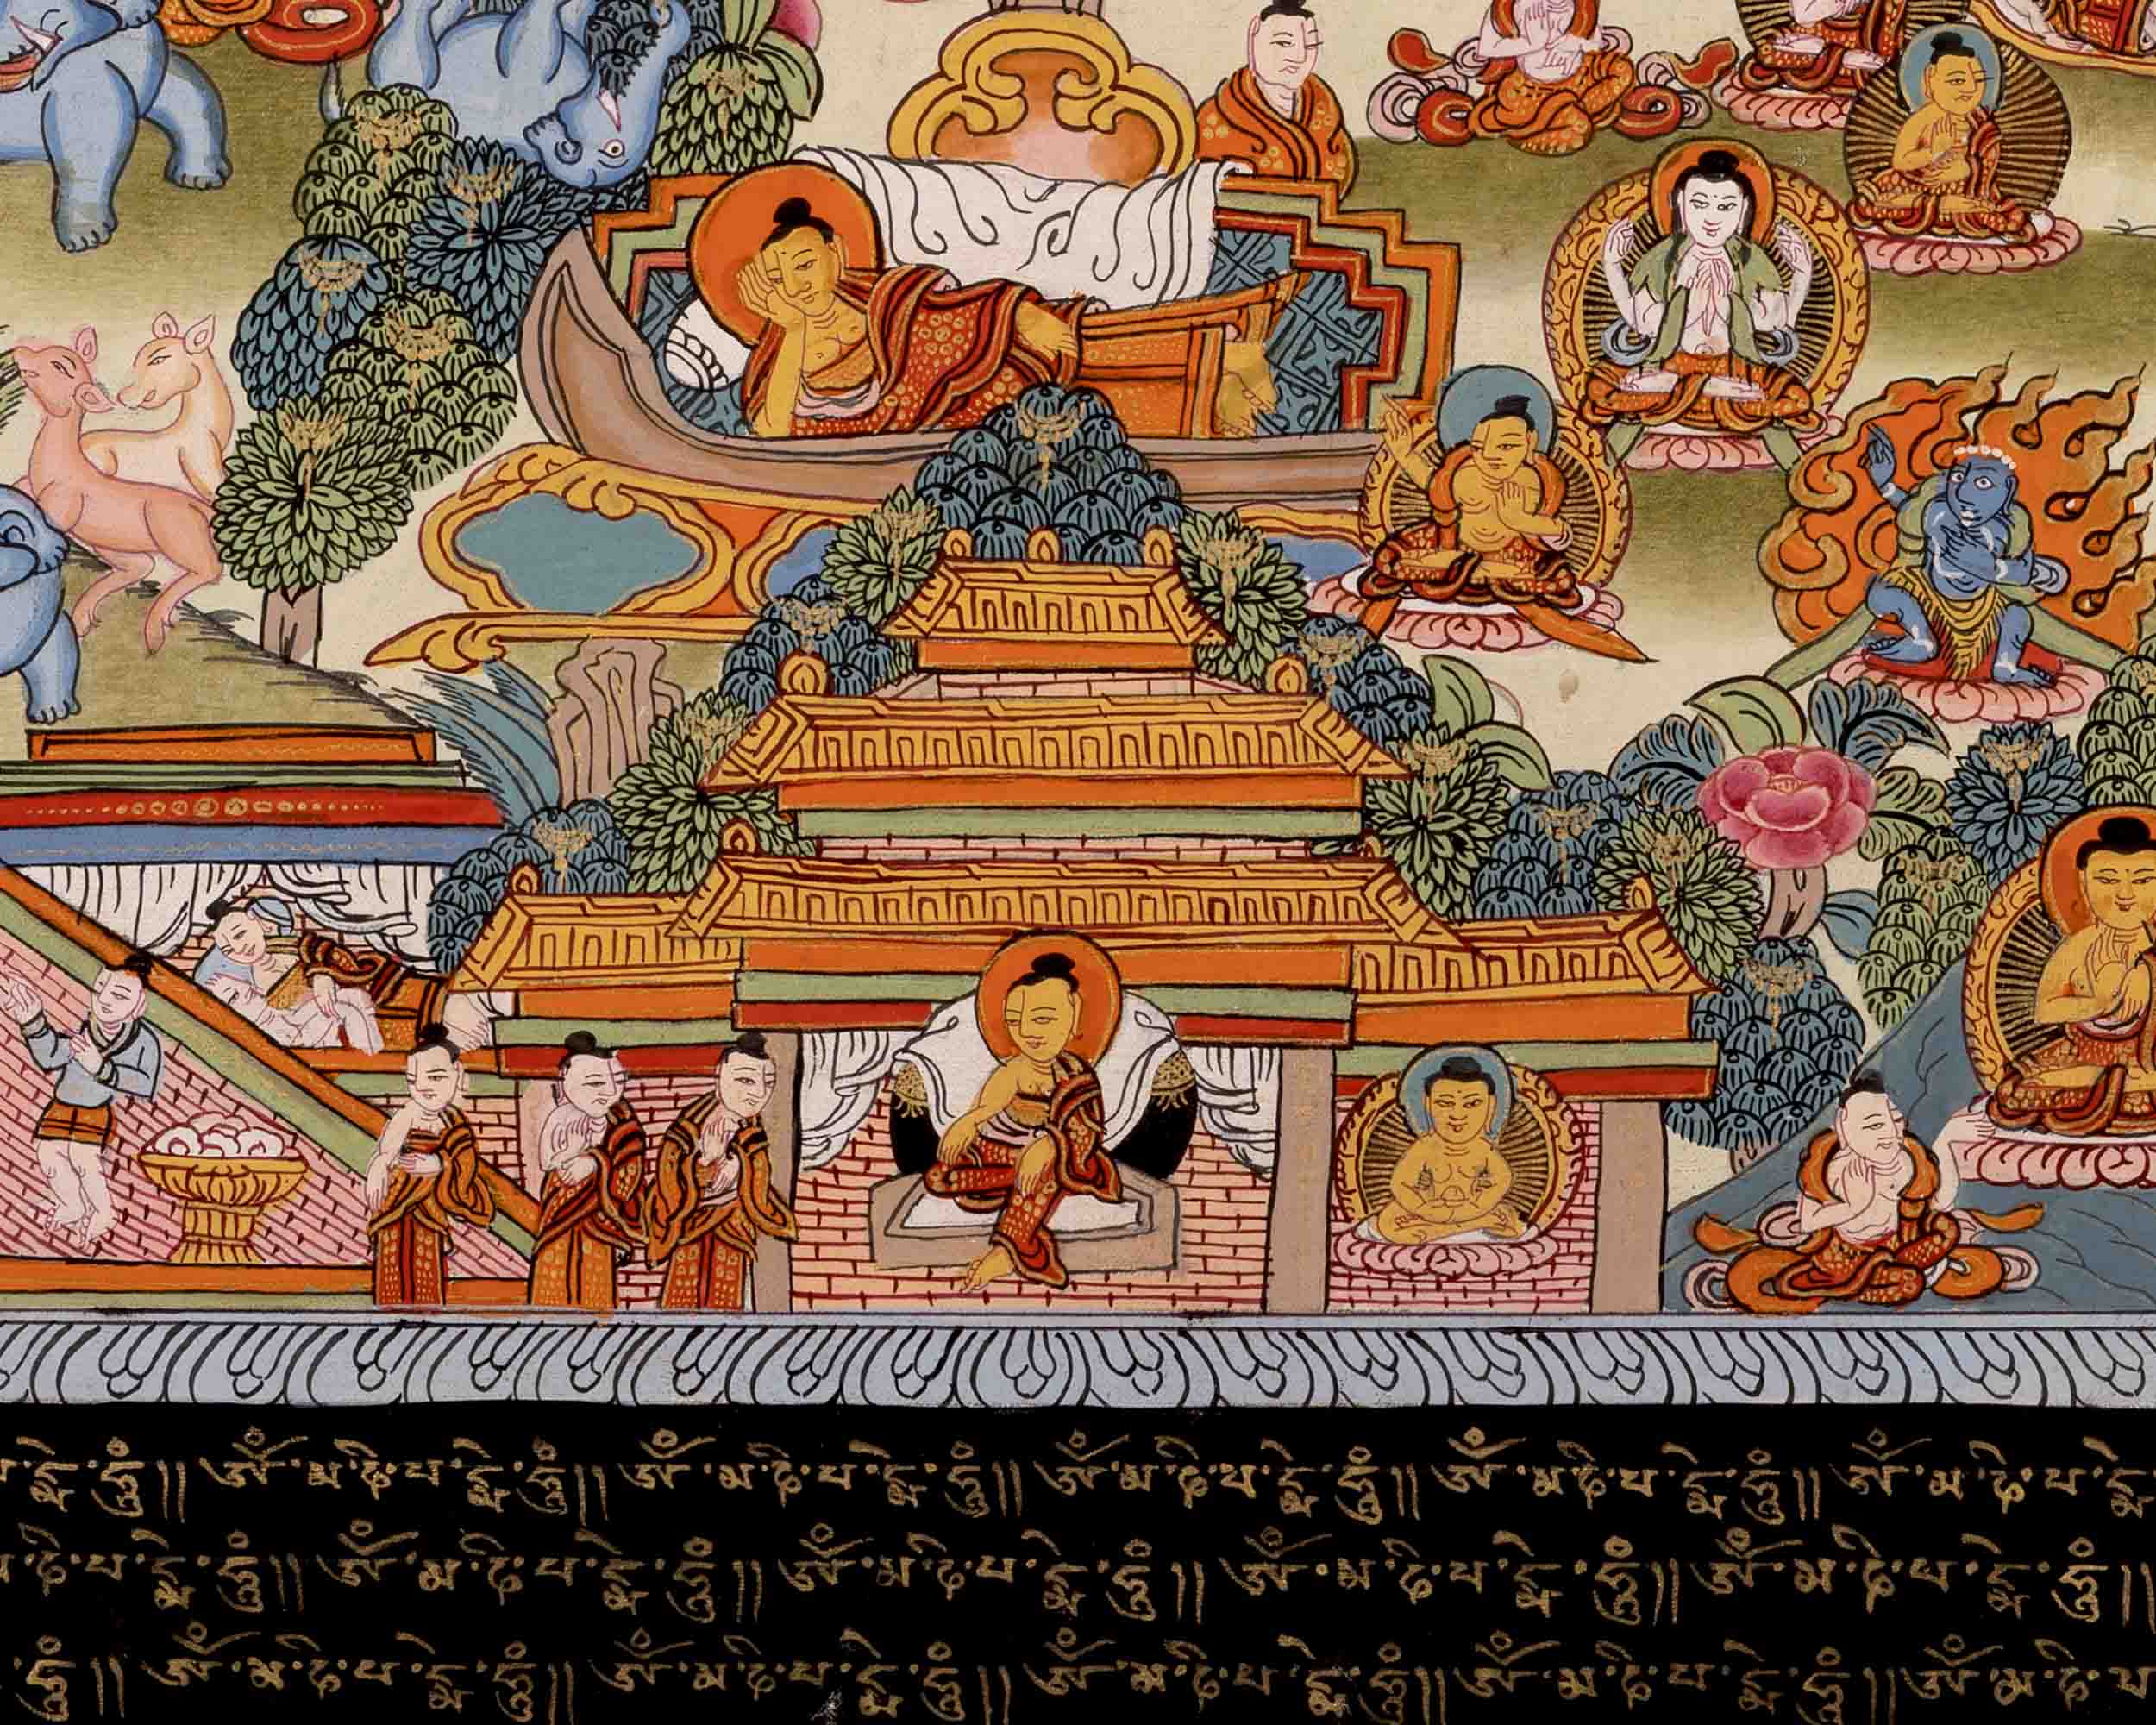 དྨེ་ཧཱུཾ།། ཨོཾ་མ་ཎི་པ་དྨེ་ཧཱུཾ།། ཨོཾ་མ་ཎི་པ་དྨེ་ཧཱུཾ།། ཨོཾ་མ་ཎི་པ་དྨེ་ཧཱུཾ།། ཨོཾ་མ་ཎི་པ་དྨེ་ཧཱུཾ།། ཨོཾ་མ་ཎི་པ་དྨེ
ཎི་པ་དྨེ་ཧཱུཾ།། ཨོཾ་མ་ཎི་པ་དྨེ་ཧཱུཾ།། ཨོཾ་མ་ཎི་པ་དྨེ་ཧཱུཾ།། ཨོཾ་མ་ཎི་པ་དྨེ་ཧཱུཾ།། ཨོཾ་མ་ཎི་པ་དྨེ་ཧཱུཾ།།
ཧཱུཾ།། ཨོཾ་མ་ཎི་པ་དྨེ་ཧཱུཾ།། ཨོཾ་མ་ཎི་པ་དྨེ་ཧཱུཾ།། ཨོཾ་མ་ཎི་པ་དྨེ་ཧཱུཾ།། ཨོཾ་མ་ཎི་པ་དྨེ་ཧཱུཾ།། ཨོཾ་མ་ཎི་པ